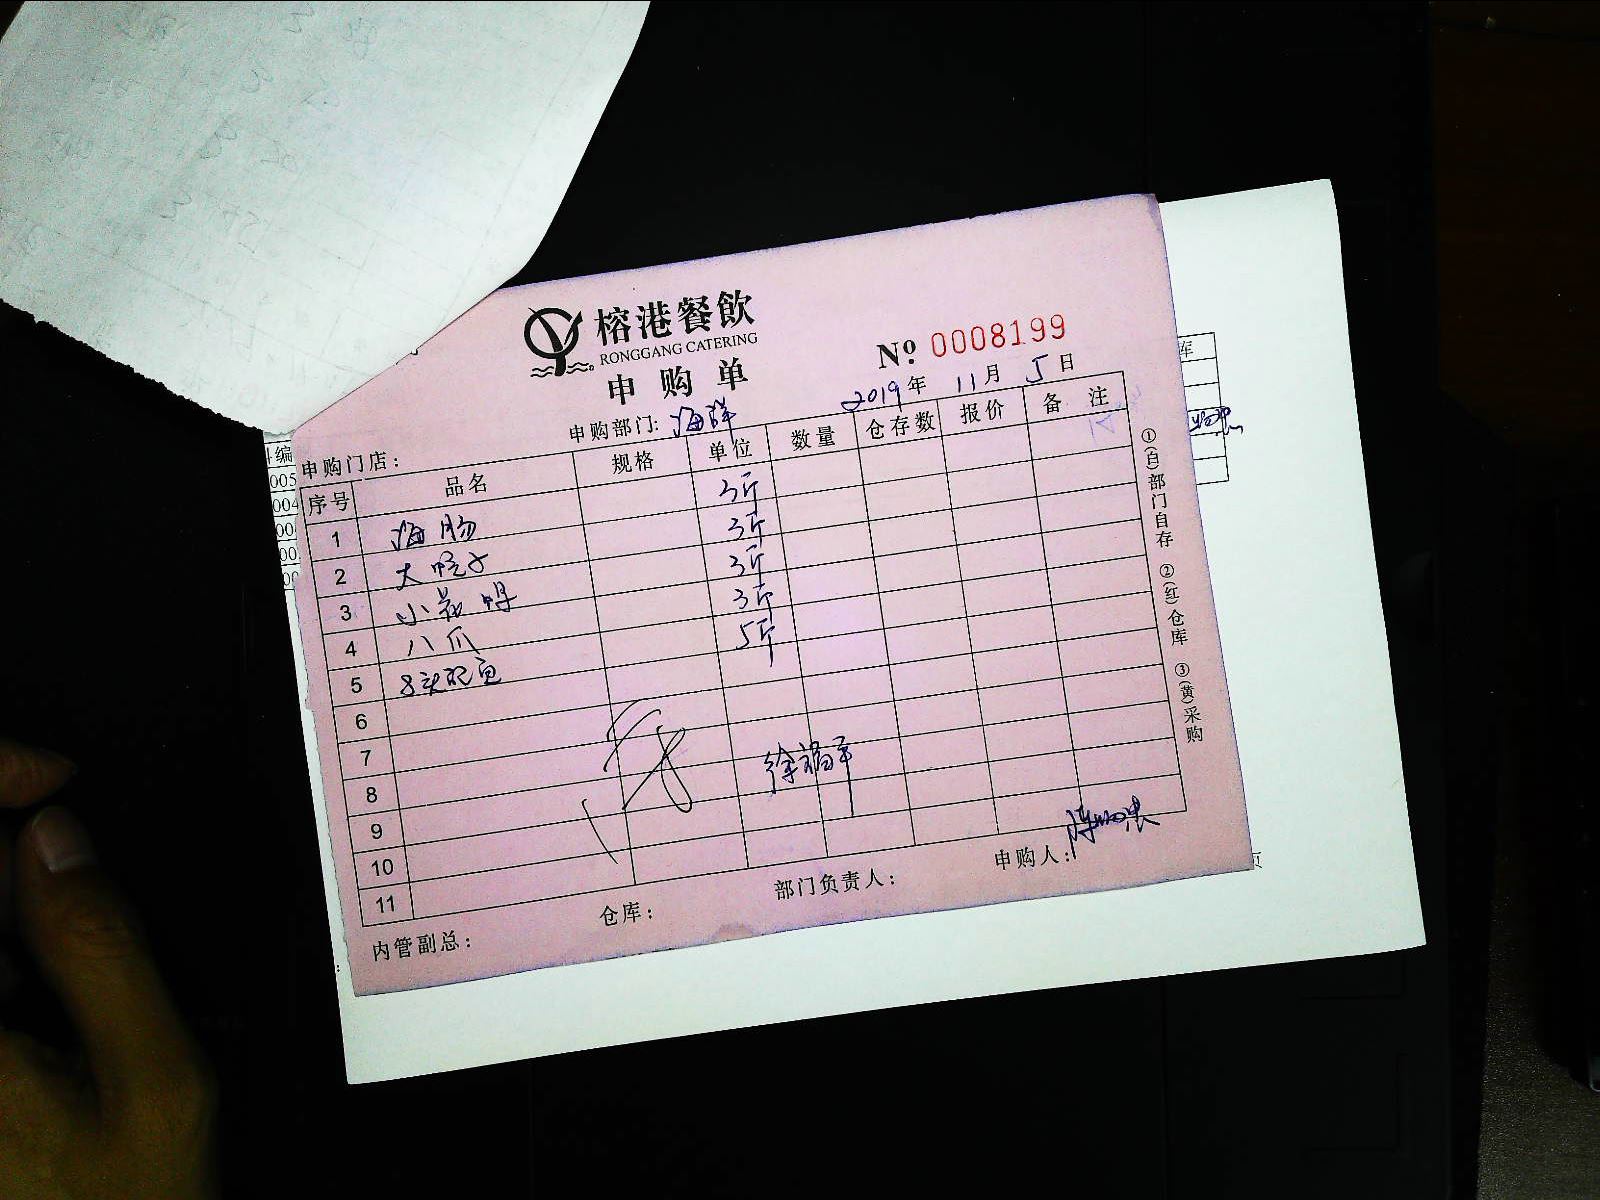 榕港餐飲
RONGGANG CATERING
申购单
№ 0008199
2019年 11月 5日
申购部门: 海鲜
申购门店:
序号 品名 规格 单位 数量 仓存数 报价 备注
1 海肠 3斤
2 大蚬子 3斤
3 小花蚬 3斤
4 八爪 3斤
5 8头鲍鱼 5斤
6
7
8
9
10
11
徐福平
内管副总: 仓库: 部门负责人: 申购人:
①(白)部门自存 ②(红)仓库 ③(黄)采购
编
005
004
00
00
库
页